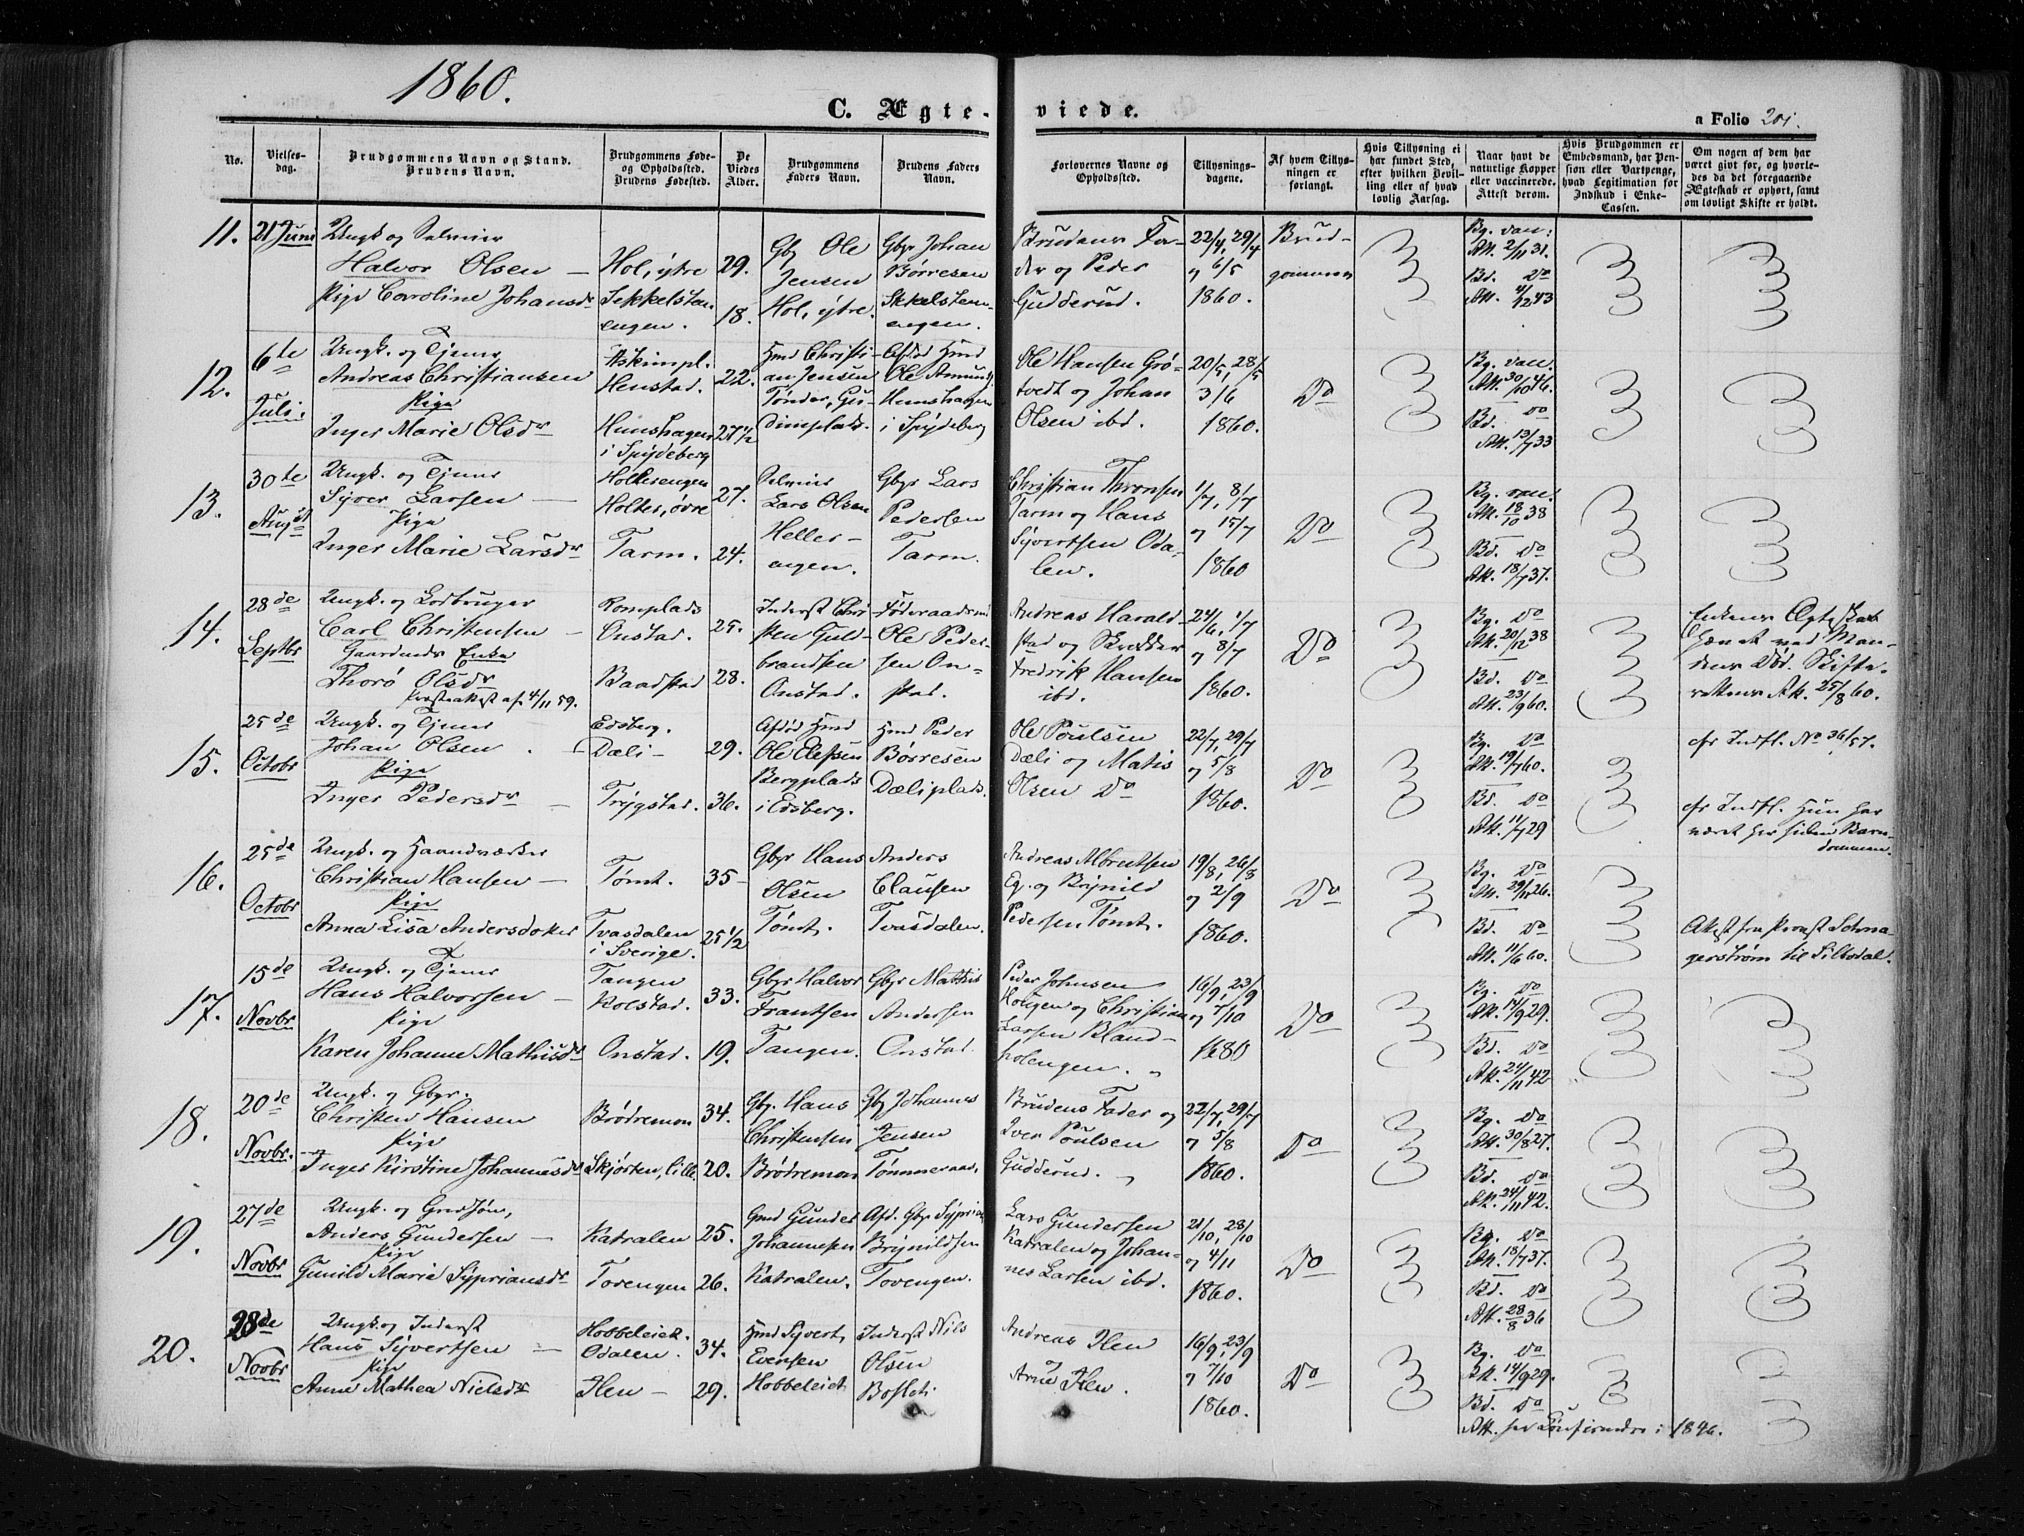 1860.
C. Ægte-
viede.
a Folio 201.
No.
Vielses-
dag.
Brudgommens Navn og Stand.
Brudens Navn.
Brudgommens Føde-
og Opholdssted.
Brudens Fødested.
De
Viedes
Alder.
Brudgommens
Faders Navn.
Brudens Faders
Navn.
Forlovernes Navne og
Opholdssted.
Tillysnings-
dagene.
Af hvem Tillys-
ningen er
forlangt.
Hvis Tillysning ei
har fundet Sted,
efter hvilken Bevil-
ling eller af hvad
lovlig Aarsag.
Naar havt de
naturlige Kopper
eller vaccinerede.
Attest derom.
Hvis Brudgommen er
Embedsmand, har Pen-
sion eller Vartpenge,
hvad Legitimation for
Indskud i Enke-
Cassen.
Om nogen af dem har
været givt før, og hvorle-
des da det foregaaende
Ægteskab er ophørt, samt
om lovligt Skifte er holdt.
11.
21 Juni
Ungk og Selveier
Halvor Olsen —
Pige Caroline Johansdr
Hol, ytre
Sekkelsten-
engen.
29.
18.
Gbr Ole
Jensen
Hol, ytre.
Gbr Johan
Børresen
Skkelsten-
engen.
Brudens Fa-
der og Peder
Gudderud.
22/4, 29/4
og 6/5
1860.
Brud-
gommen
Bg. vac:
Att. 2/11 31.
Bd. do
Att. 4/12 43
12.
6te
Juli.
Ungk. og Tjener
Andreas Christiansen
Pige
Inger Marie Olsdr
Askimpl.
Henstad.
Hunshagen
i Spydeberg
22.
27 1/2
Hmd Christi-
an Jensen
Tønder, Gis-
Dimplads.
Afdød Hmd
Ole Amunds.
Hunshagen
i Spydeberg
Ole Hansen Grø-
tvedt og Johan
Olsen ibd.
20/5, 28/5
3/6
1860.
do
Bg. vac.
Att. 30/10 46.
Bd. do
Att. 13/7 33
13.
30te
August
Ungk. og Tjener
Syver Larsen —
Pige
Inger Marie Larsdr
Holtesengen
Holtes, øvre
Tarm.
27.
24.
Selveier
Lars Olsen
Heller-
engen.
Gbr Lars
Pedersen
Tarm.
Christian Thronsen
Tarm og Hans
Syvertsen Oda-
len.
1/7, 8/7
og 15/7
1860
do
Bg. vac.
Att. 18/10 38
Bd. do
Att. 18/7 37.
14.
28de
Septbr
Ungk. og Lodbruger
Carl Christensen —
Gaardmds Enke
Thorø Olsdr
Præsteattest af 4/11 59.
Romplads
Onstad.
Baadstad
25.
28.
Inderst Chri-
sten Guld-
brandsen
Onstad.
Føderaadsmd
Ole Peder-
sen On-
stad.
Andreas Harald-
stad og Skrædder
Fredrik Hansen
ibd.
24/6, 1/7
og 8/7
1860.
do
Bg. do
Att. 20/12 38
Bd. do
Att. 23/9 60.
Enkens Ægteskab
hævet ved Man-
dens Død. Skifte-
rettens Att. 25/8 60.
15.
25de
Octobr
Ungk. og Tjener
Johan Olsen . —
Pige
Inger Pedersdr —
Edsberg.
Dæli —
Trygstad.
29.
36.
Afdød Hmd
Ole Olefsen
Bergplads
i Edsberg.
Hmd Peder
Børresen
Dæliplads.
Ole Poulsen
Dæli og Matis
Olsen do
22/7, 29/7
og 5/8
1860.
do
Bg. do
Att. 19/7 60.
Bd. do
Att. 11/7 29
cfr Indfl. No 36/57.
cfr Indfl. Hun har
været her siden Barn-
dommen.
16.
25de
Octobr
Ungk. og Haandværker
Christian Hansen —
Pige
Anna Lisa Andersdoter
Tømt.
Tvasdalen
i Sverige.
35 —
25 1/2
Gbr Hans
Olsen
Tømt.
Anders
Clausen
Tvasdalen.
Andreas Albretsen
Eg. og Brynild
Pedersen Tømt.
19/8, 26/8
og 2/9
1860.
do
Bg. do
Att. 29/11 26.
Bd. do
Att. 11/6 60.
Attest fra Provst Schna-
gerstrøm til Silbodal.
17.
15de
Novbr
Ungk. og Tjener
Hans Halvorsen —
Pige
Karen Johanne Mathisdr
Tangen
Kolstad.
Onstad.
33.
19.
Gbr Halvor
Frantsen
Tangen.
Gbr Mathis
Andersen
Onstad.
Peder Johnsen
Kongen og Christian
Larsen Bland-
holengen. „
16/9, 23/9
og 7/10
1680
do
Bg. do
Att. 14/9 29.
Bd. do
Att. 24/11 42
18.
20de
Novbr.
Ungk. og Gbgr.
Christen Hansen
Pige
Inger Kirstine Johannesdr
Brødremon
Skjørten, lille
34.
20.
Gbr. Hans
Christensen
Brødremon
Gbr Johannes
Jensen
Tømmeraas.
Brudens Fader og
Iver Poulsen
Gudderud. „
22/7, 29/7
og 5/8
1860.
do
Bg. do
Att. 30/8 27.
Bd. do
Att. 24/11 42.
19.
27de
Novbr
Ungk. og Grdsøn,
Anders Gundersen —
Pige
Gunild Maria Sypriansdr
Katralen
Tovengen
25.
26.
Gmd Gunder
Johannesen
Katralen.
Afd. Gbr Syprian
Brynildsen
Tovengen.
Lars Gundersen
Katralen og Johan-
nes Larsen ibd.
21/10, 28/10
og 4/11
1860.
do
Bg. do
Att. 18/7 37.
Bd. do
Att. 28/8 36
20.
28de
Novbr
Ungk. og Inderst
Hans Syvertsen —
Pige
Anne Mathea Nielsdr
Hobbeleiet.
Odalen.
Ilen —
34.
29.
Hmd Syvert
Evensen
Hobbeleiet
Inderst Nils
Olsen
Andreas Ilen
og
Arne Ilen.
16/9, 23/9
og 7/10
1860.
do
Bg. do
Att. 14/9 29.
Bd. do
Att. har Confirmeret i 1846.